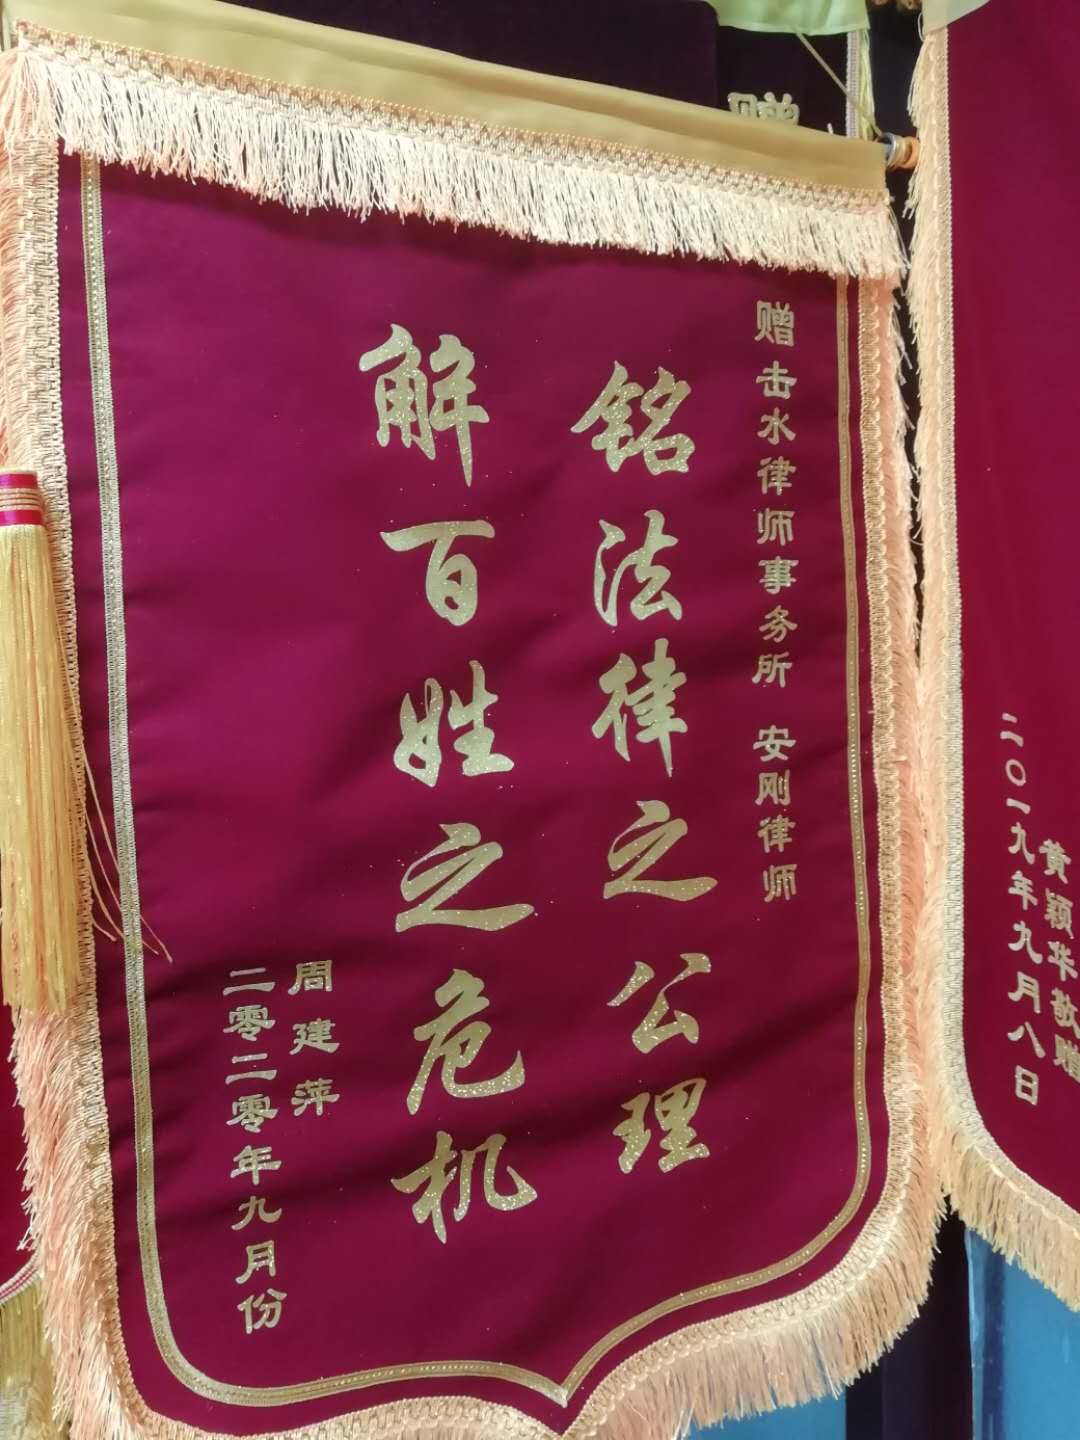 赠击水律师事务所 安刚律师
铭法律之公理
解百姓之危机
周建萍
二零二零年九月份
赠
黄颖华敬赠
二〇一九年九月八日